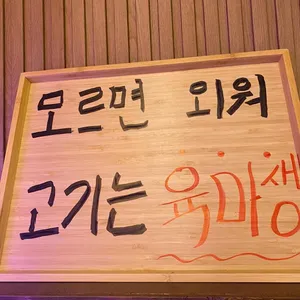 모르면 외워
고기는 육마생